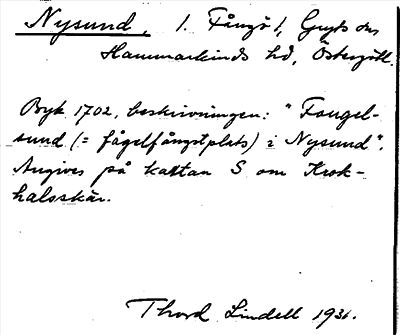 Nysund, 1. Fångö 1, Gryts sn
Hammarkinds hd, Östergötl.
Byk 1702, beskrivningen: "Fougel-
sund (= fågelfångstplats) i Nysund".
Angives på kartan S om Krok-
halsskär.
Thord Lindell 1936.